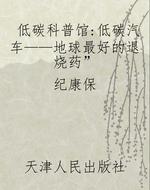 低碳科普馆:低碳汽
车——地球最好的退
烧药”
纪康保
天津人民出版社